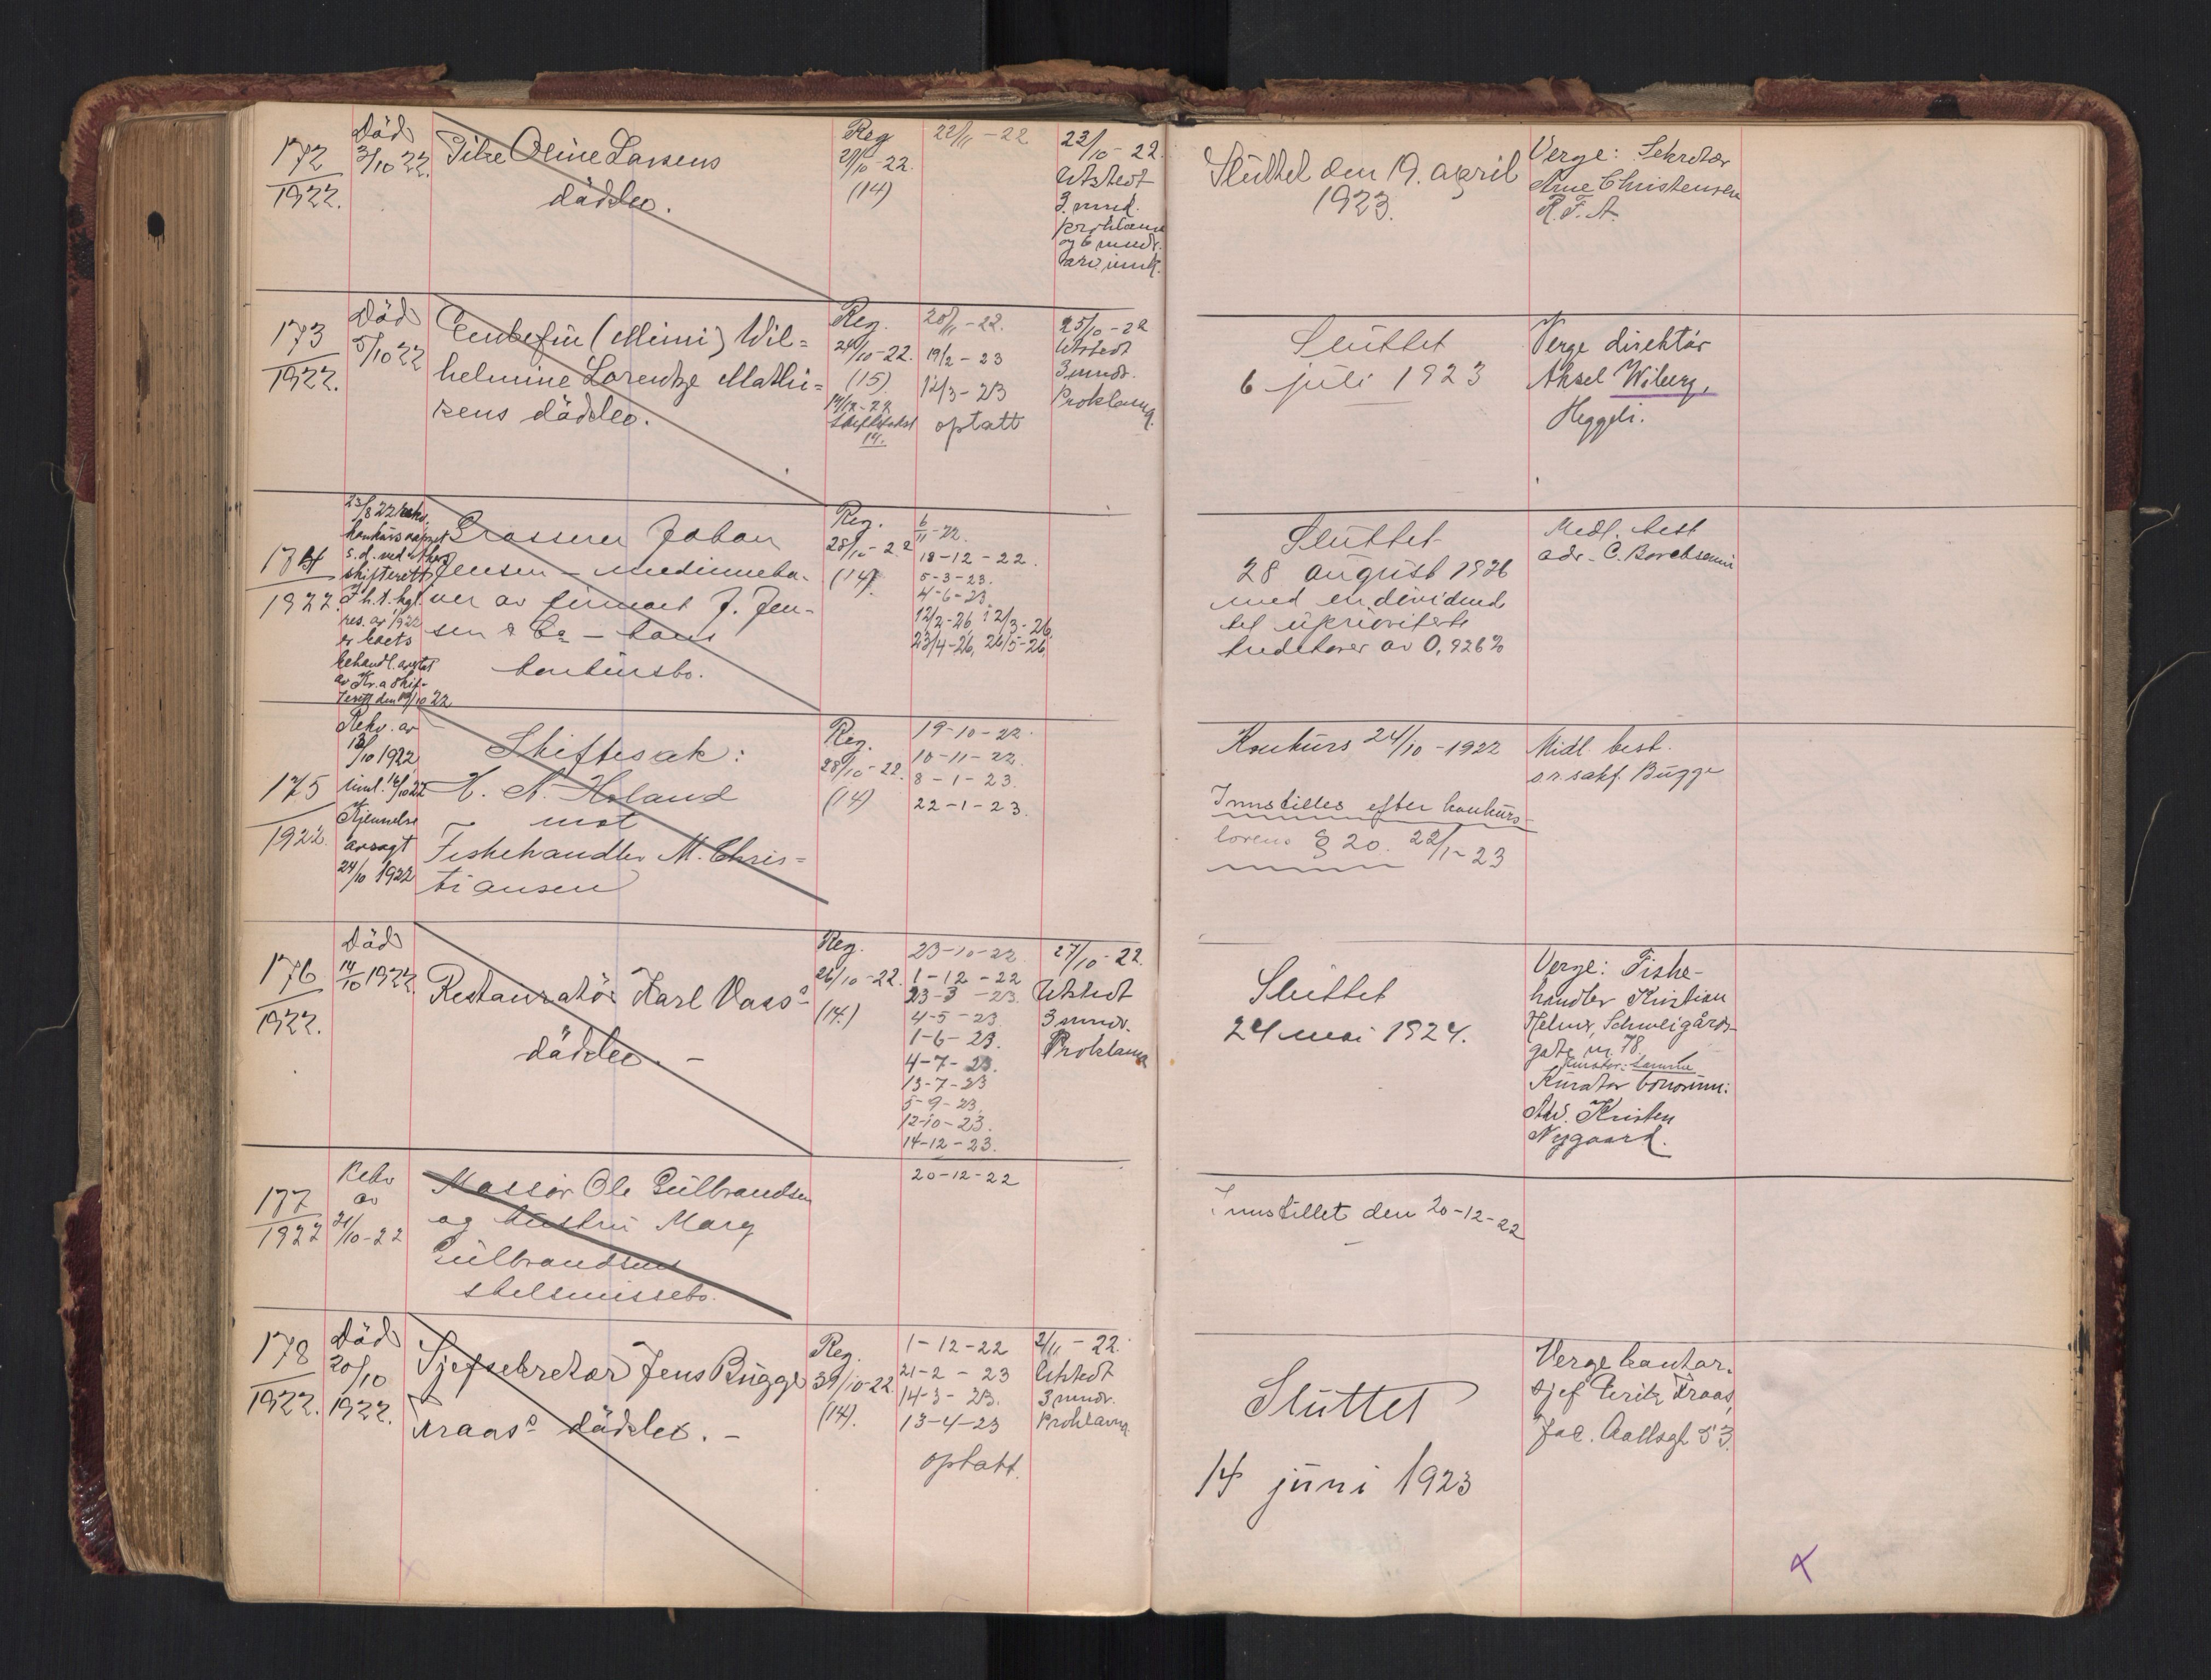 172
1922.
Död
3/10 22.
Pike Oline Larsens
dödsbo.
Reg
27/10-22.
(14)
22/11-22
23/10-22.
Utstedt
3 mnd.
proklama
og 6 mndr.
arv. innk.
Sluttet den 19. april
1923.
Verge: Sekretær
Arne Christensen
R. F. A.
173
1922.
Död
5/10 22
(Mimi) Wil=
helmine Lorentze Mathi=
sens dödsbo.
Reg.
24/10-22.
(15)
14/12-22
Skiftefakst
14.
20/11-22.
19/2-23
12/3-23
optatt
25/10-22
Utstedt
3 mndr.
Proklama.
Sluttet
6 juli 1923
Verge direktör
Aksel Wiberg,
Heggeli.
174
1922.
23/8 22 rekv.
konkurs
s. d. ved Aker
skifterett
I h. t. kgl.
res. av 1922
er boets
behandl.
av Kr.a skif-
terett den 19/10 22
Grosserer Johan
Jensen – medinneha-
ver av firmaet J. Jen-
sen & Co – hans
konkursbo.
Reg.
28/10-22
(14)
6/11-22.
18-12-22.
5-3-23.
4-6-23.
12/2-26, 12/3-26,
23/4-26, 26/5-26,
Sluttet
28 august 1926
med en dividende
til uprioriterte
kreditorer av 0,926%
Midl. best
adv. C.
175
1922.
Rekv. av
13/10 1922
innl. 16/10 22
Kjennelse
avsagt
24/10 1922
Skiftesak:
H. A. Holand
mot
Fiskehandler M. Chris=
tiansen
Reg.
28/10-22.
(14)
19-10-22.
10-11-22.
8-1-23.
22-1-23.
Konkurs 24/10-1922
Innstilles efter konkurs-
lovens § 20. 22/1-23
Midl. best.
o.r.sakf. Bugge
176
1922.
Död
14/10 1922.
Restauratör Karl Vass'
dödsbo. –
Reg.
26/10-22.
(14.)
23-10-22.
1-12-22
23-3-23.
4-5-23
1-6-23.
4-7-23.
13-7-23
5-9-23.
12-10-23.
14-12-23.
27/10-22.
Utstedt
3 mndr.
Proklama
Sluttet
24 mai 1924.
Verge: Fiske-
handler Kristian
Helmer, Schweigårds-
gate nr. 78.
Kurator: samme
Kurator bonorum:
Adv. Kristen
Nygaard.
177
1922
Rekv
av
21/10-22
Massör Ole Gulbrandsen
og hustru Mary
Gulbrandsens
skilsmissebo.
20-12-22
Innstillet den 20-12-22
178
1922.
Död
20/10
1922.
Sjefsekretær Jens Bugge
Kraas' dödsbo. –
Reg.
30/10-22.
(14).
1-12-22
21-2-23
14-3-23.
13-4-23
optatt.
2/11-22.
Utstedt
3 mndr.
Proklama
Sluttet
14 juni 1923
Verge kontor-
sjef Fritz Kraas,
Jac. Aallsgt 53.